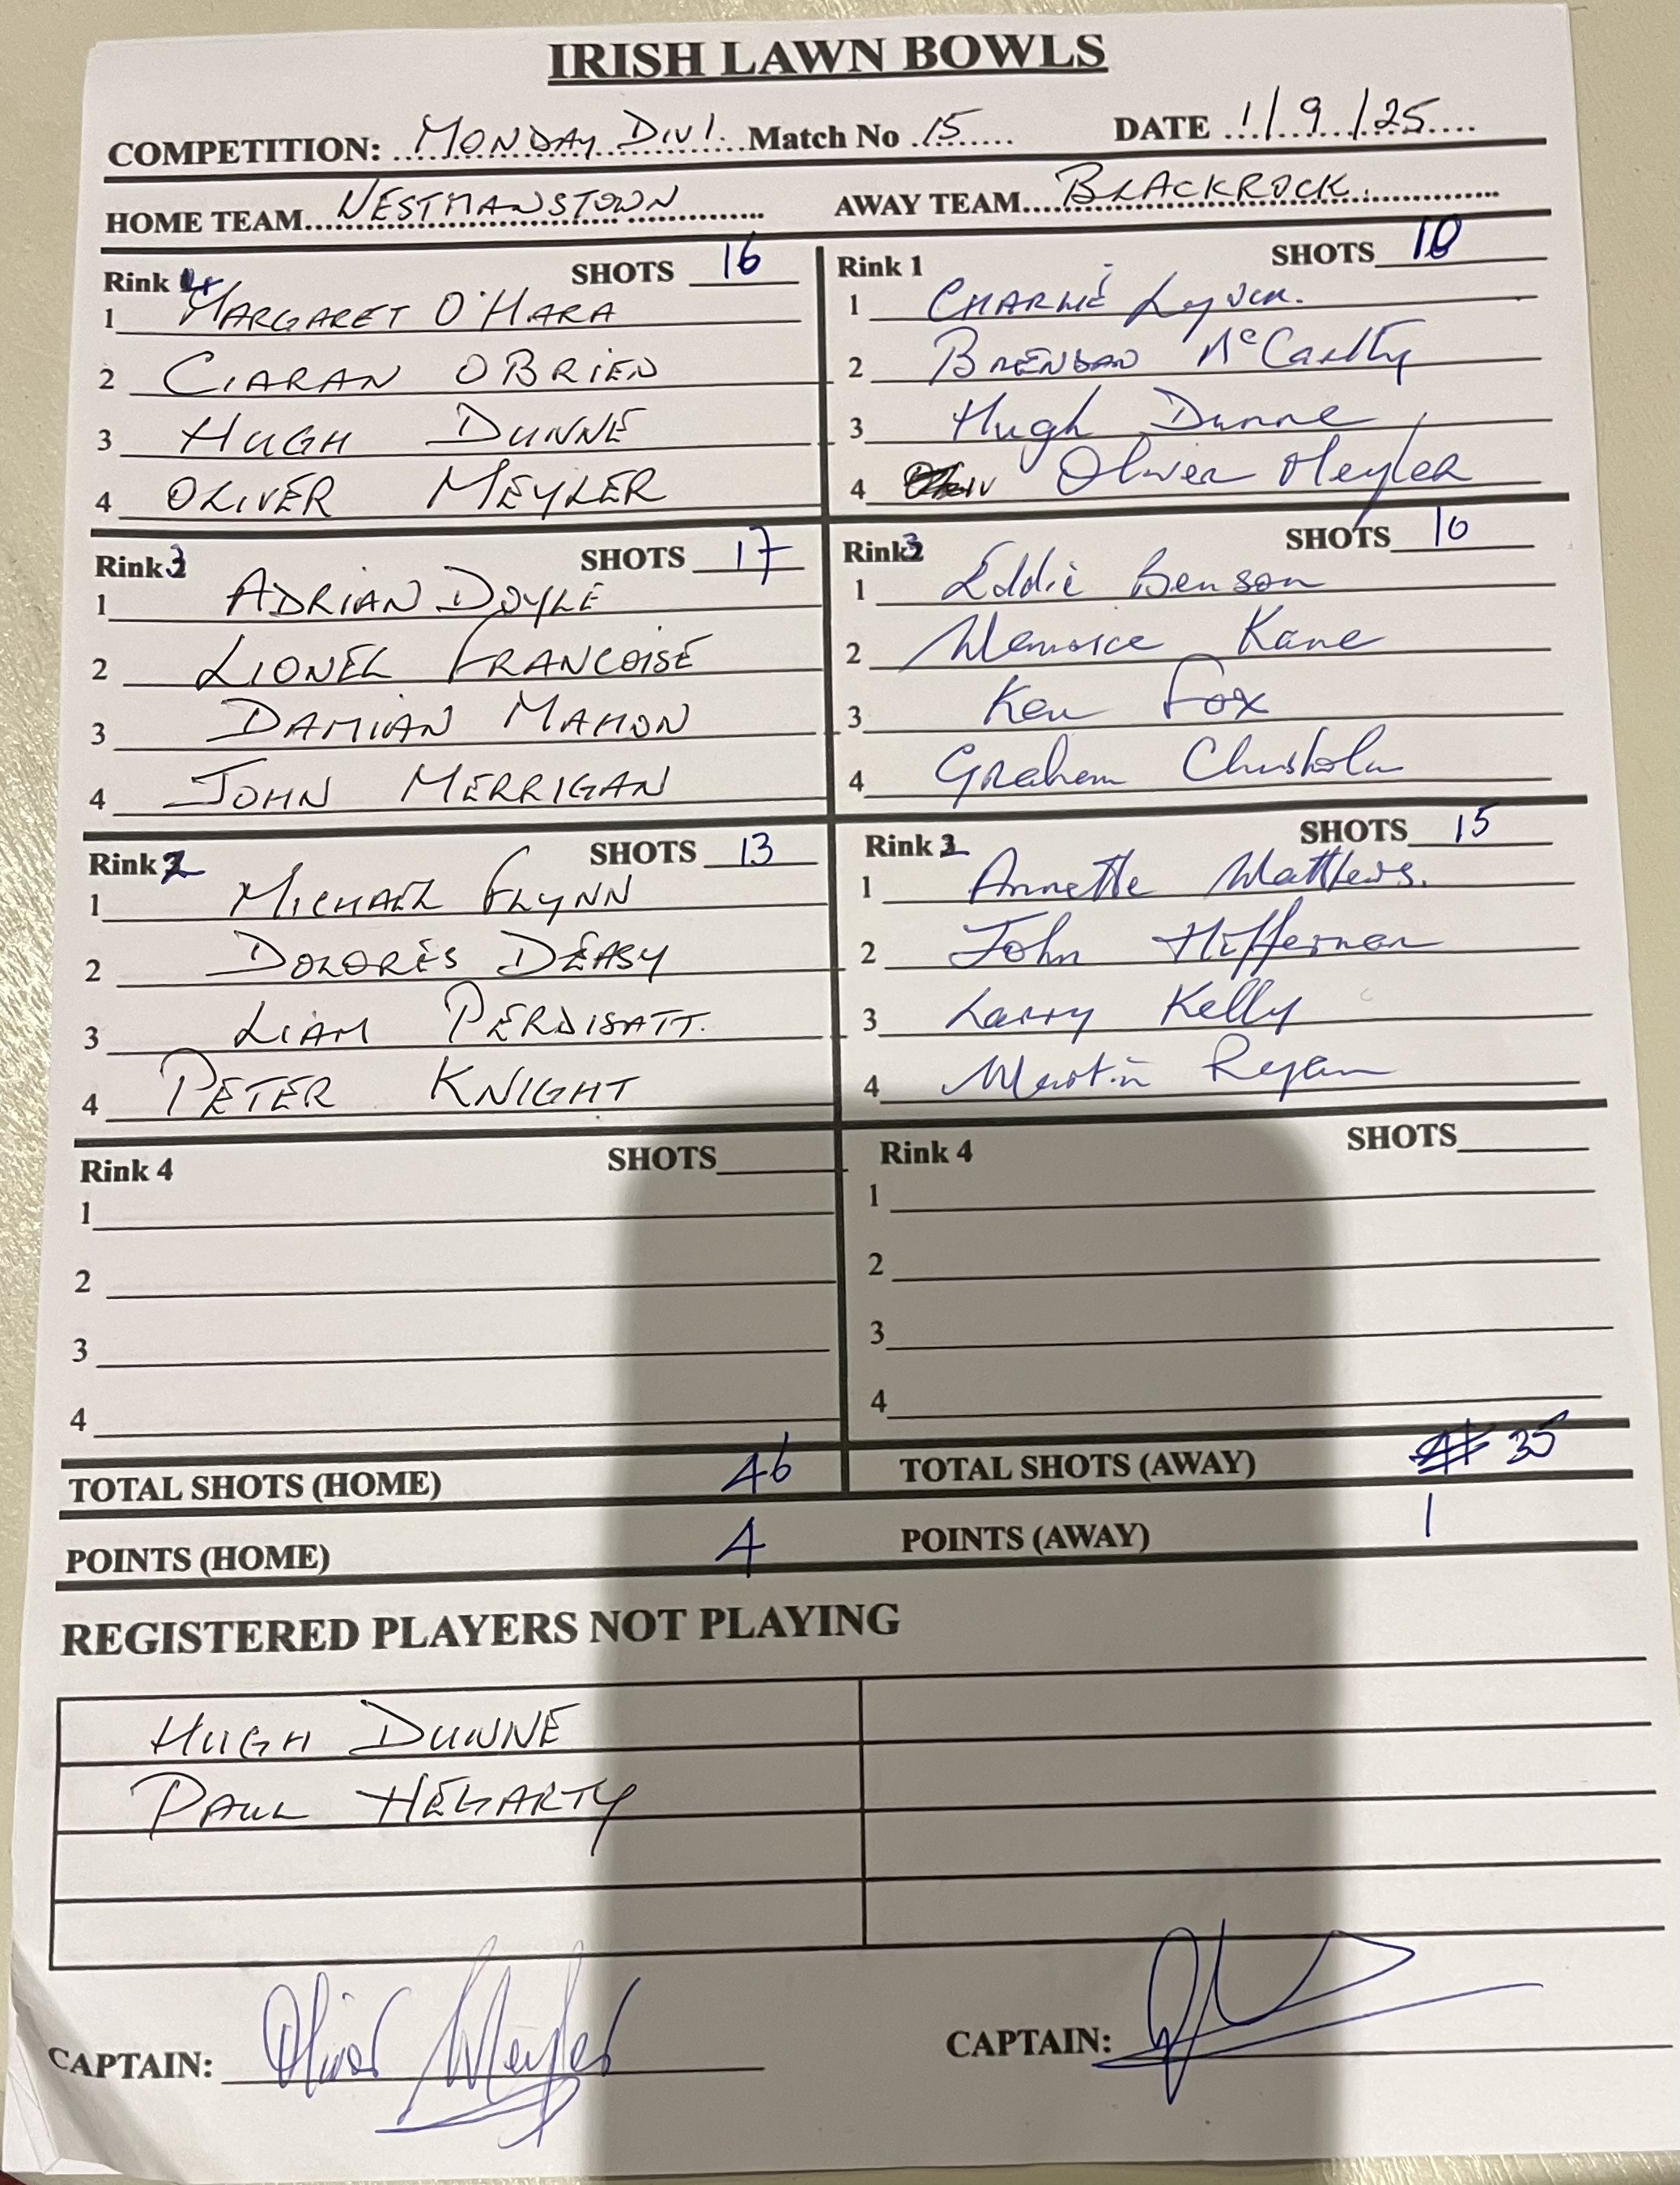 IRISH LAWN BOWLS
COMPETITION: MONDAY DIV 1. Match No 15 DATE 1/9/25
HOME TEAM WESTMANSTOWN AWAY TEAM BLACKROCK
Rink 4 SHOTS 16
1 MARGARET O'HARA
2 CIARAN OBRIEN
3 HUGH DUNNE
4 OLIVER MEYLER
Rink 1 SHOTS 10
1 CHARLIE Lynch.
2 BRENDAN McCarthy
3 Hugh Dunne
4 Oliver Meyler
Rink 3 SHOTS 17
1 ADRIAN DOYLE
2 LIONEL FRANCOISE
3 DAMIAN MAHON
4 JOHN MERRIGAN
Rink 3 SHOTS 10
1 Eddie Benson
2 Kane
3 Ken Fox
4 Graham Chisholm
Rink 2 SHOTS 13
1 MICHAEL FLYNN
2 DOLORES DEASY
3 LIAM
4 PETER KNIGHT
Rink 2 SHOTS 15
1 Annette Matthews.
2 John Hiffernan
3 Larry Kelly
4 Martin Ryan
Rink 4 SHOTS
1
2
3
4
Rink 4 SHOTS
1
2
3
4
TOTAL SHOTS (HOME) 46 TOTAL SHOTS (AWAY) 35
POINTS (HOME) 4 POINTS (AWAY) 1
REGISTERED PLAYERS NOT PLAYING
HUGH DUNNE
PAUL HEGARTY
CAPTAIN: Oliver Meyler CAPTAIN: